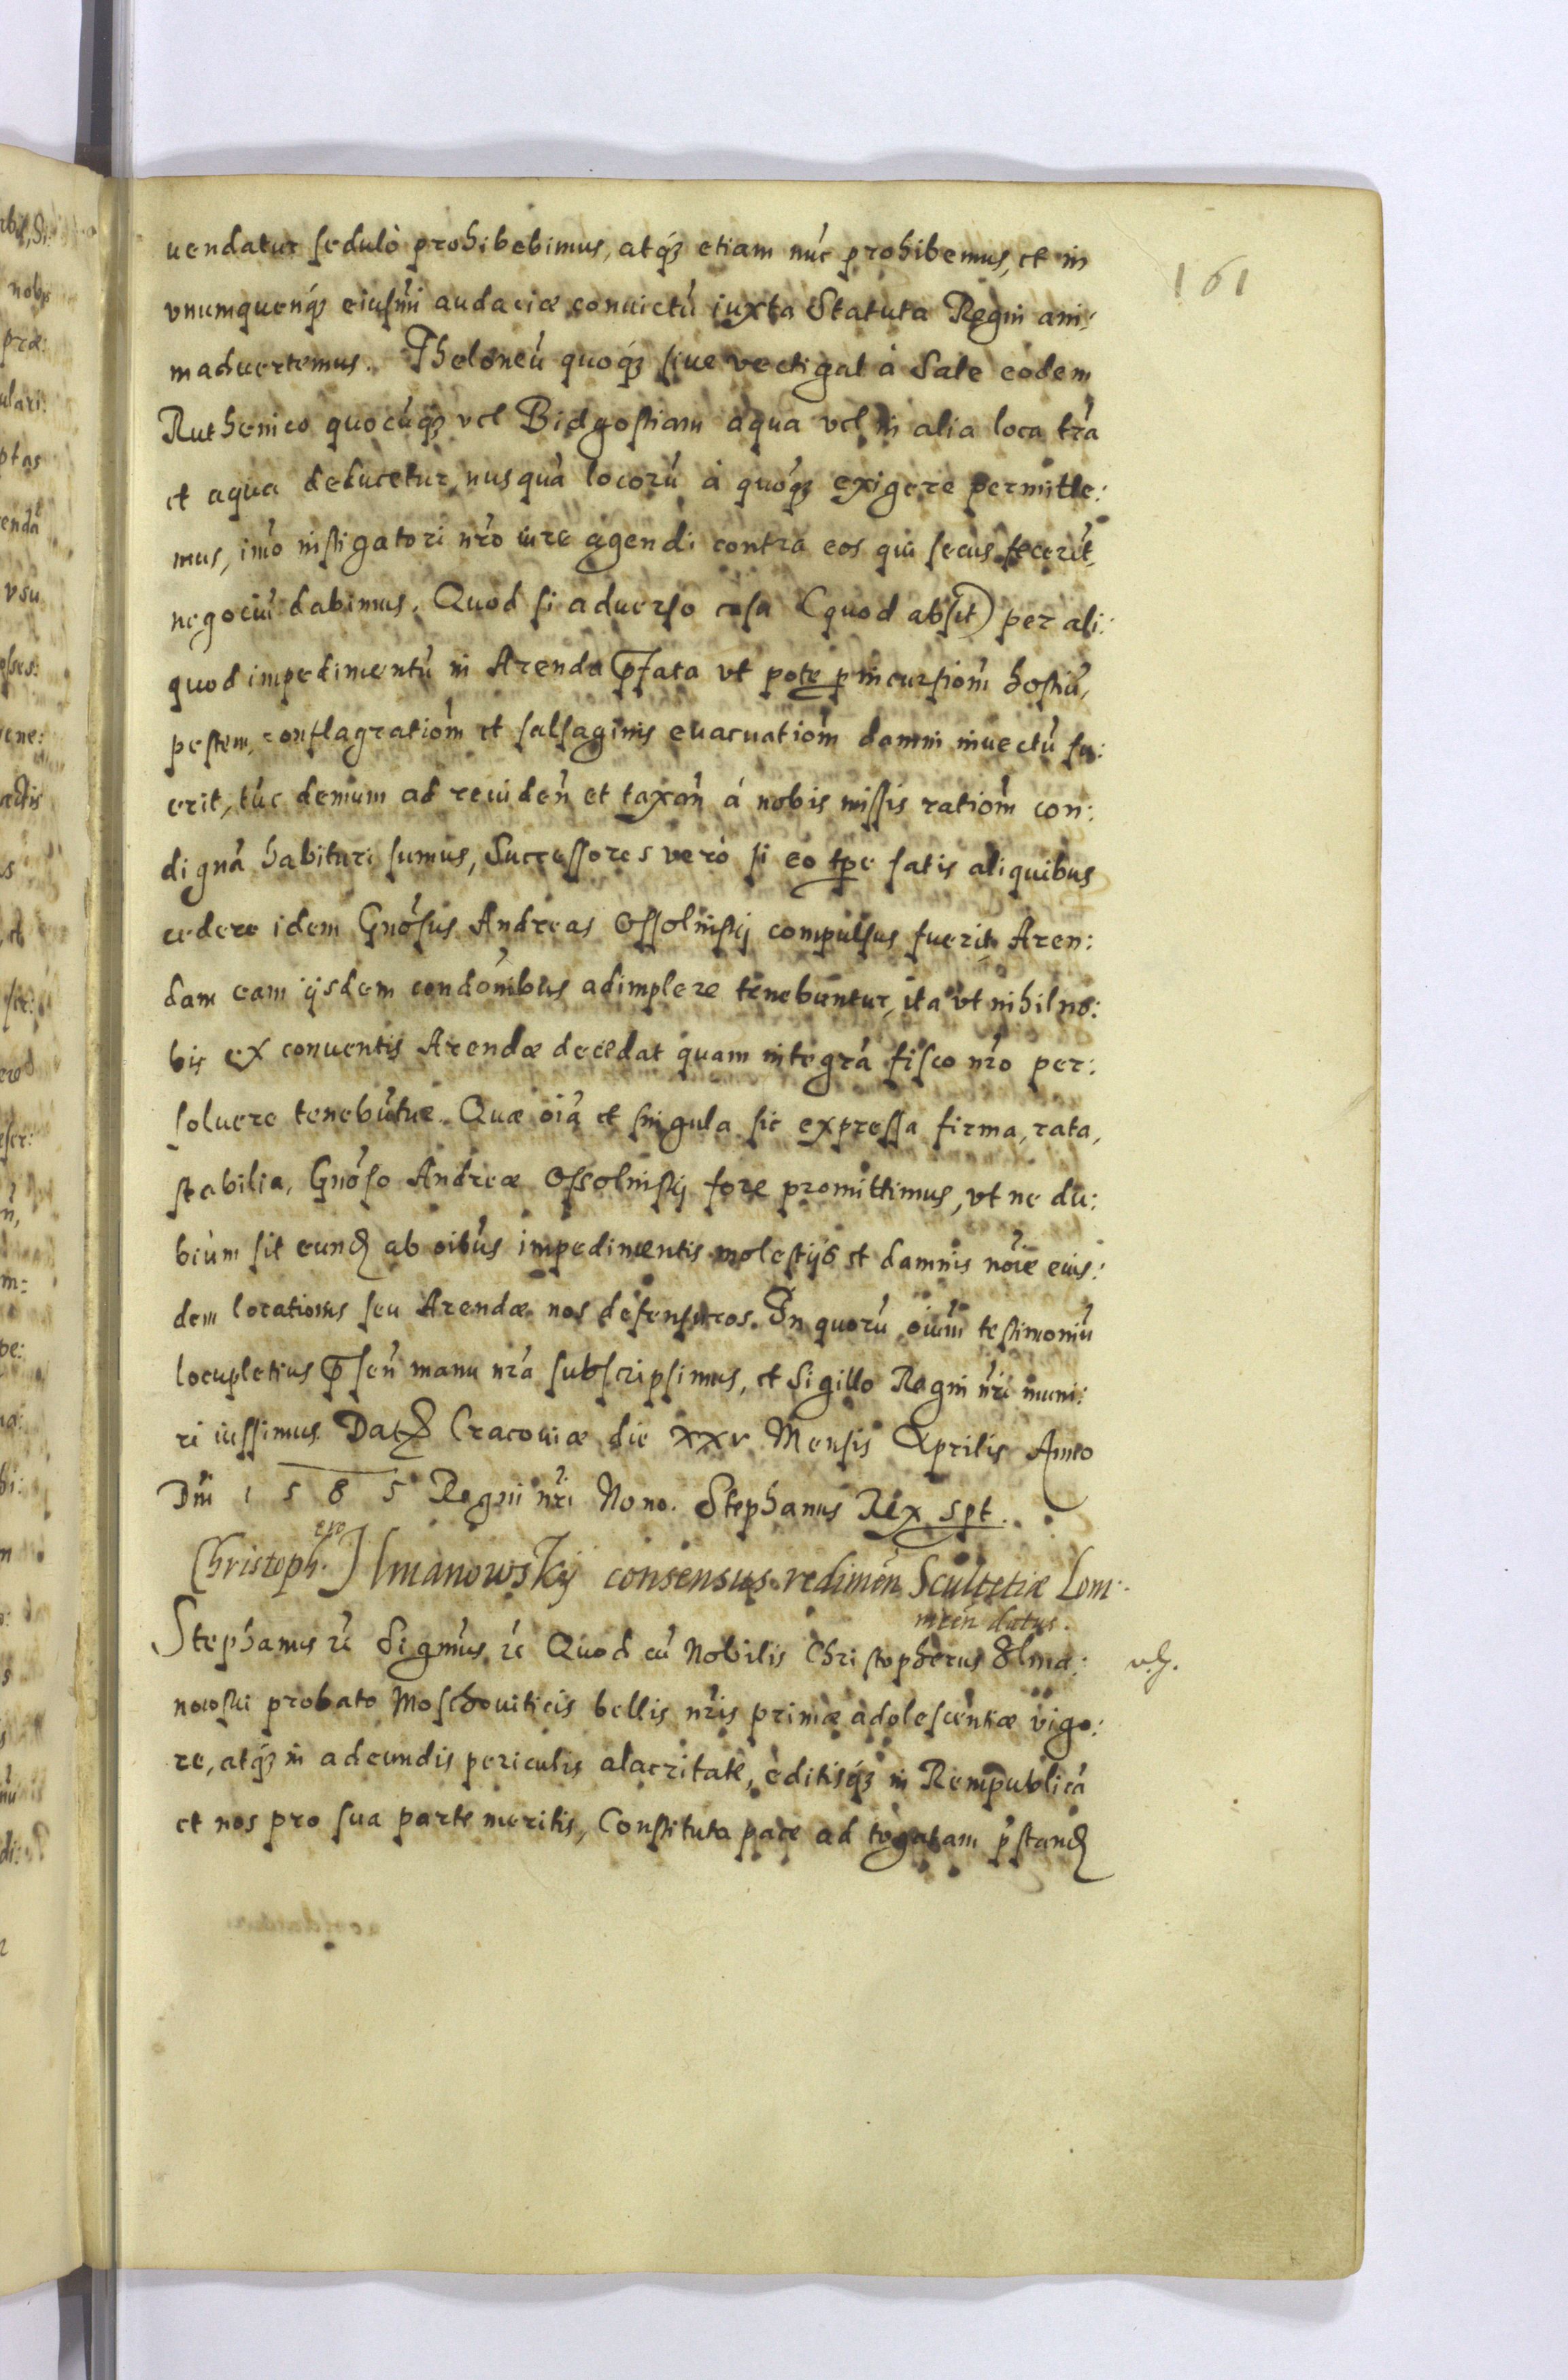 161
uendatur sedulò prohibebimus, atq́ꝫ etiam núc prohibemus, et in
vnumquenq́ꝫ eiusm̃i audaciæ conuictú iuxta Statuta Regni ani:
maduertemus. Theloneú quoq́ꝫ siue vectigal à Sale eodem
Ruthenico quocúq́ꝫ vel Bidgostiam aqua vel in alia loca trá
et aqua deducetur, nusquá locorú à quoq́ꝫ exigere permitte:
mus, imó instigatori nr̃o iure agendi contra eos qui secus fecerĩt
negociú dabimus. Quod si aduerso casu (quod absit) per ali:
quod impedimentú in Arenda p̃fata vt pote p incursioḿ hostiú,
pestem, conflagratioḿ et salsaginis euacuatioḿ damni inuectú fu:
erit, túc demum ad reuideń et taxań á nobis missis ratioḿ con:
digná habituri sumus, Successores verò si eo tp̃e fatis aliquibus
cedere idem Gnósus Andreas Ossolinskj compulsus fuerit, Aren:
dam eam ijsdem condónibus adimplere tenebuntur, ita vt nihil no:
bis ex conuentis Arendæ decedat quam integrá fisco nr̃o per:
soluere tenebútur. Quæ oiá et singula sic expressa firma, rata,
stabilia, Gnóso Andreæ Ossolinskj fore promittimus, vt ne du:
bium sit eund̃ ab oib́us impedimentis molestijs et damnis noíe eius:
dem locationis seu Arendæ nos defensuros. In quorú oiúm testimoniú
locupletius p̃señ manu nrá subscripsimus, et Sigillo Regni nr̃i muni:
ri iussimus Datꝫ Cracouiæ die xxv Mensis Aprilis Anno
Dn̄i 1585 Regni nr̃i Nono. Stephanus Rex spt.
ero
Christoph. Ilmanowskij consensus redimeń Scultetiæ Lom:
Stephanus rć Sigm̃us rć Quod cú Nobilis Christopherus Ilma:
nowski probato Moschouiticis bellis nr̃is primæ adolescentiæ vigo:
re, atq́ꝫ in adeundis periculis alacritate, editisq́ꝫ in Rempublicá
et nos pro sua parte meritis, Constituta pace ad togatam p̃stand̃